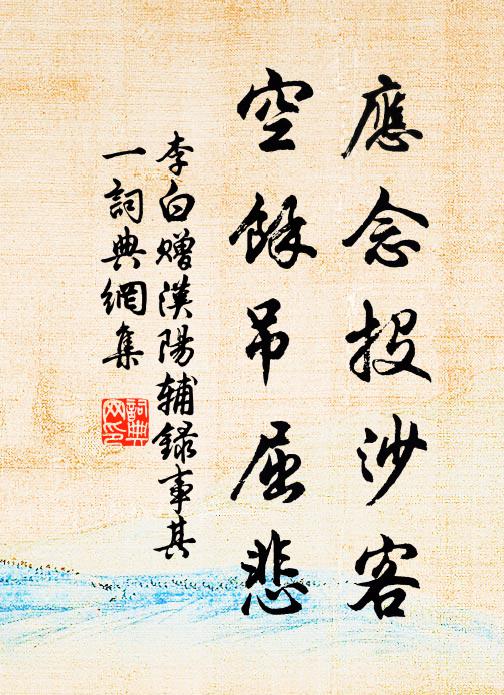 應念投沙客
空餘吊屈悲
李白赠漢陽辅録事其
一詞典網集
詞典
网印